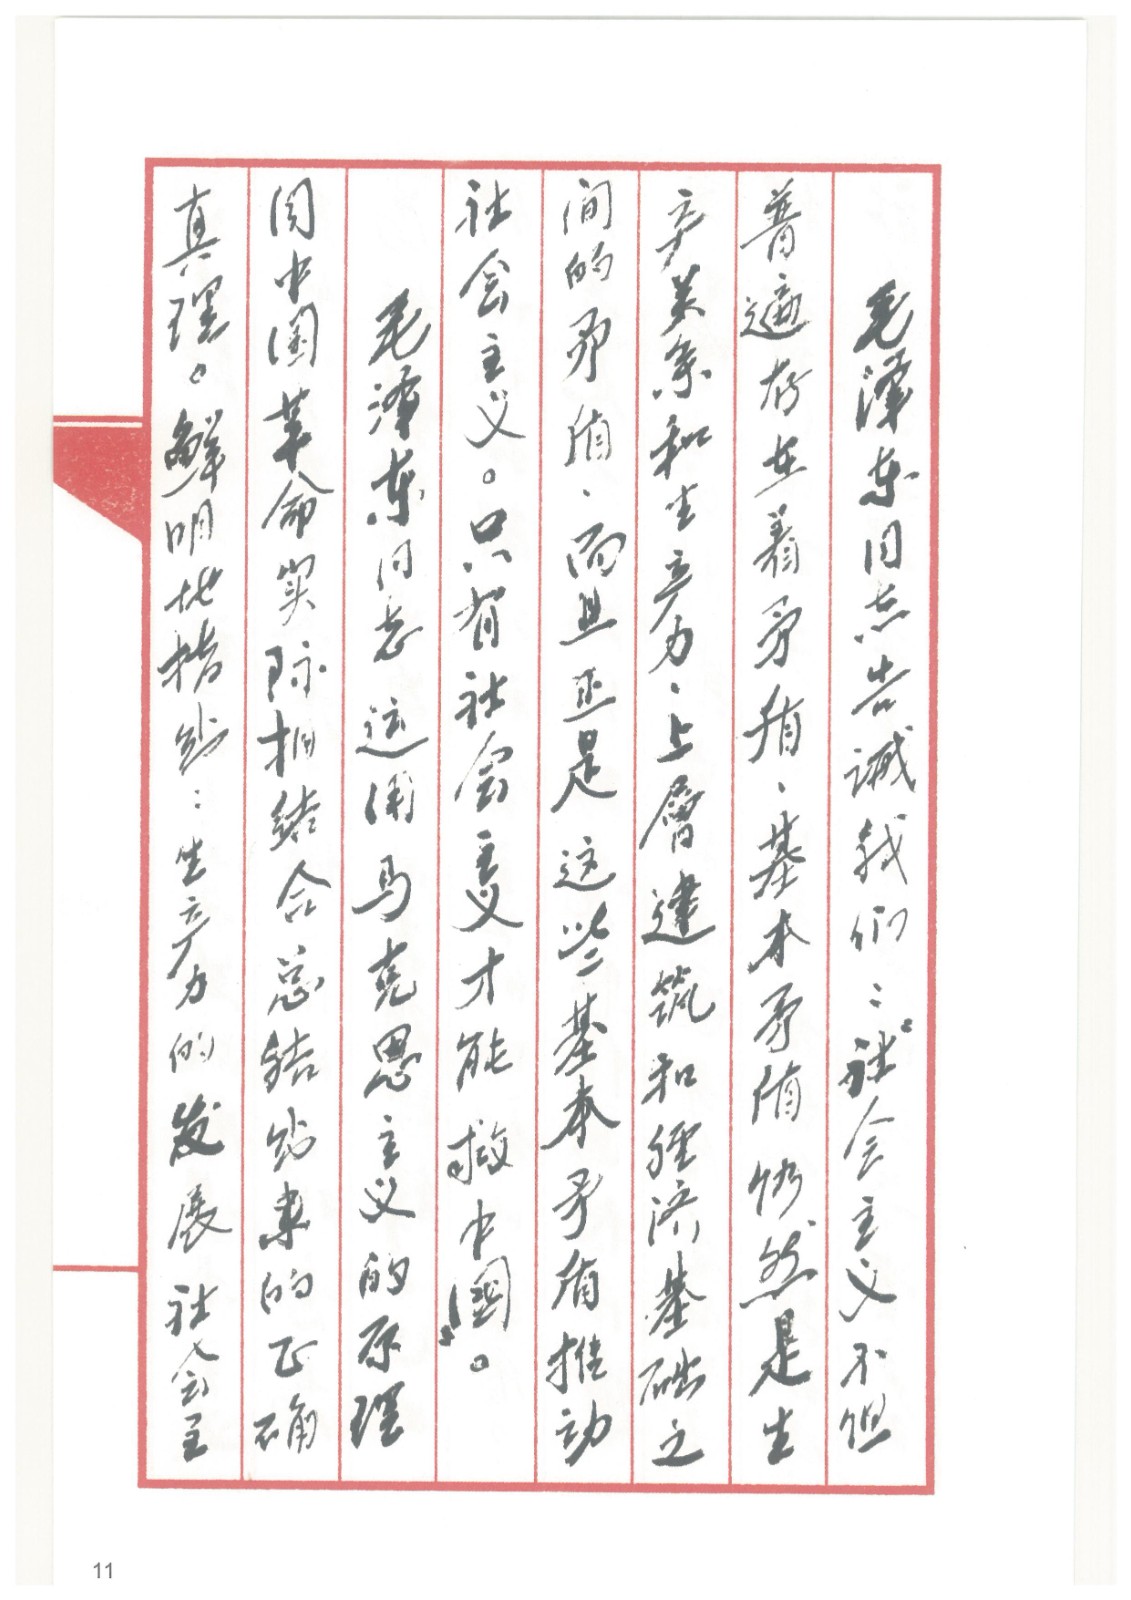 毛泽东同志告诫我们：“社会主义不但
普遍存在着矛盾、基本矛盾仍然是生
产关系和生产力、上层建筑和经济基础之
间的矛盾、而且正是这些基本矛盾推动
社会主义。只有社会主义才能救中国”。
毛泽东同志运用马克思主义的原理
同中国革命实际相结合总结出来的正确
真理。鲜明地指出：生产力的发展社会主
11